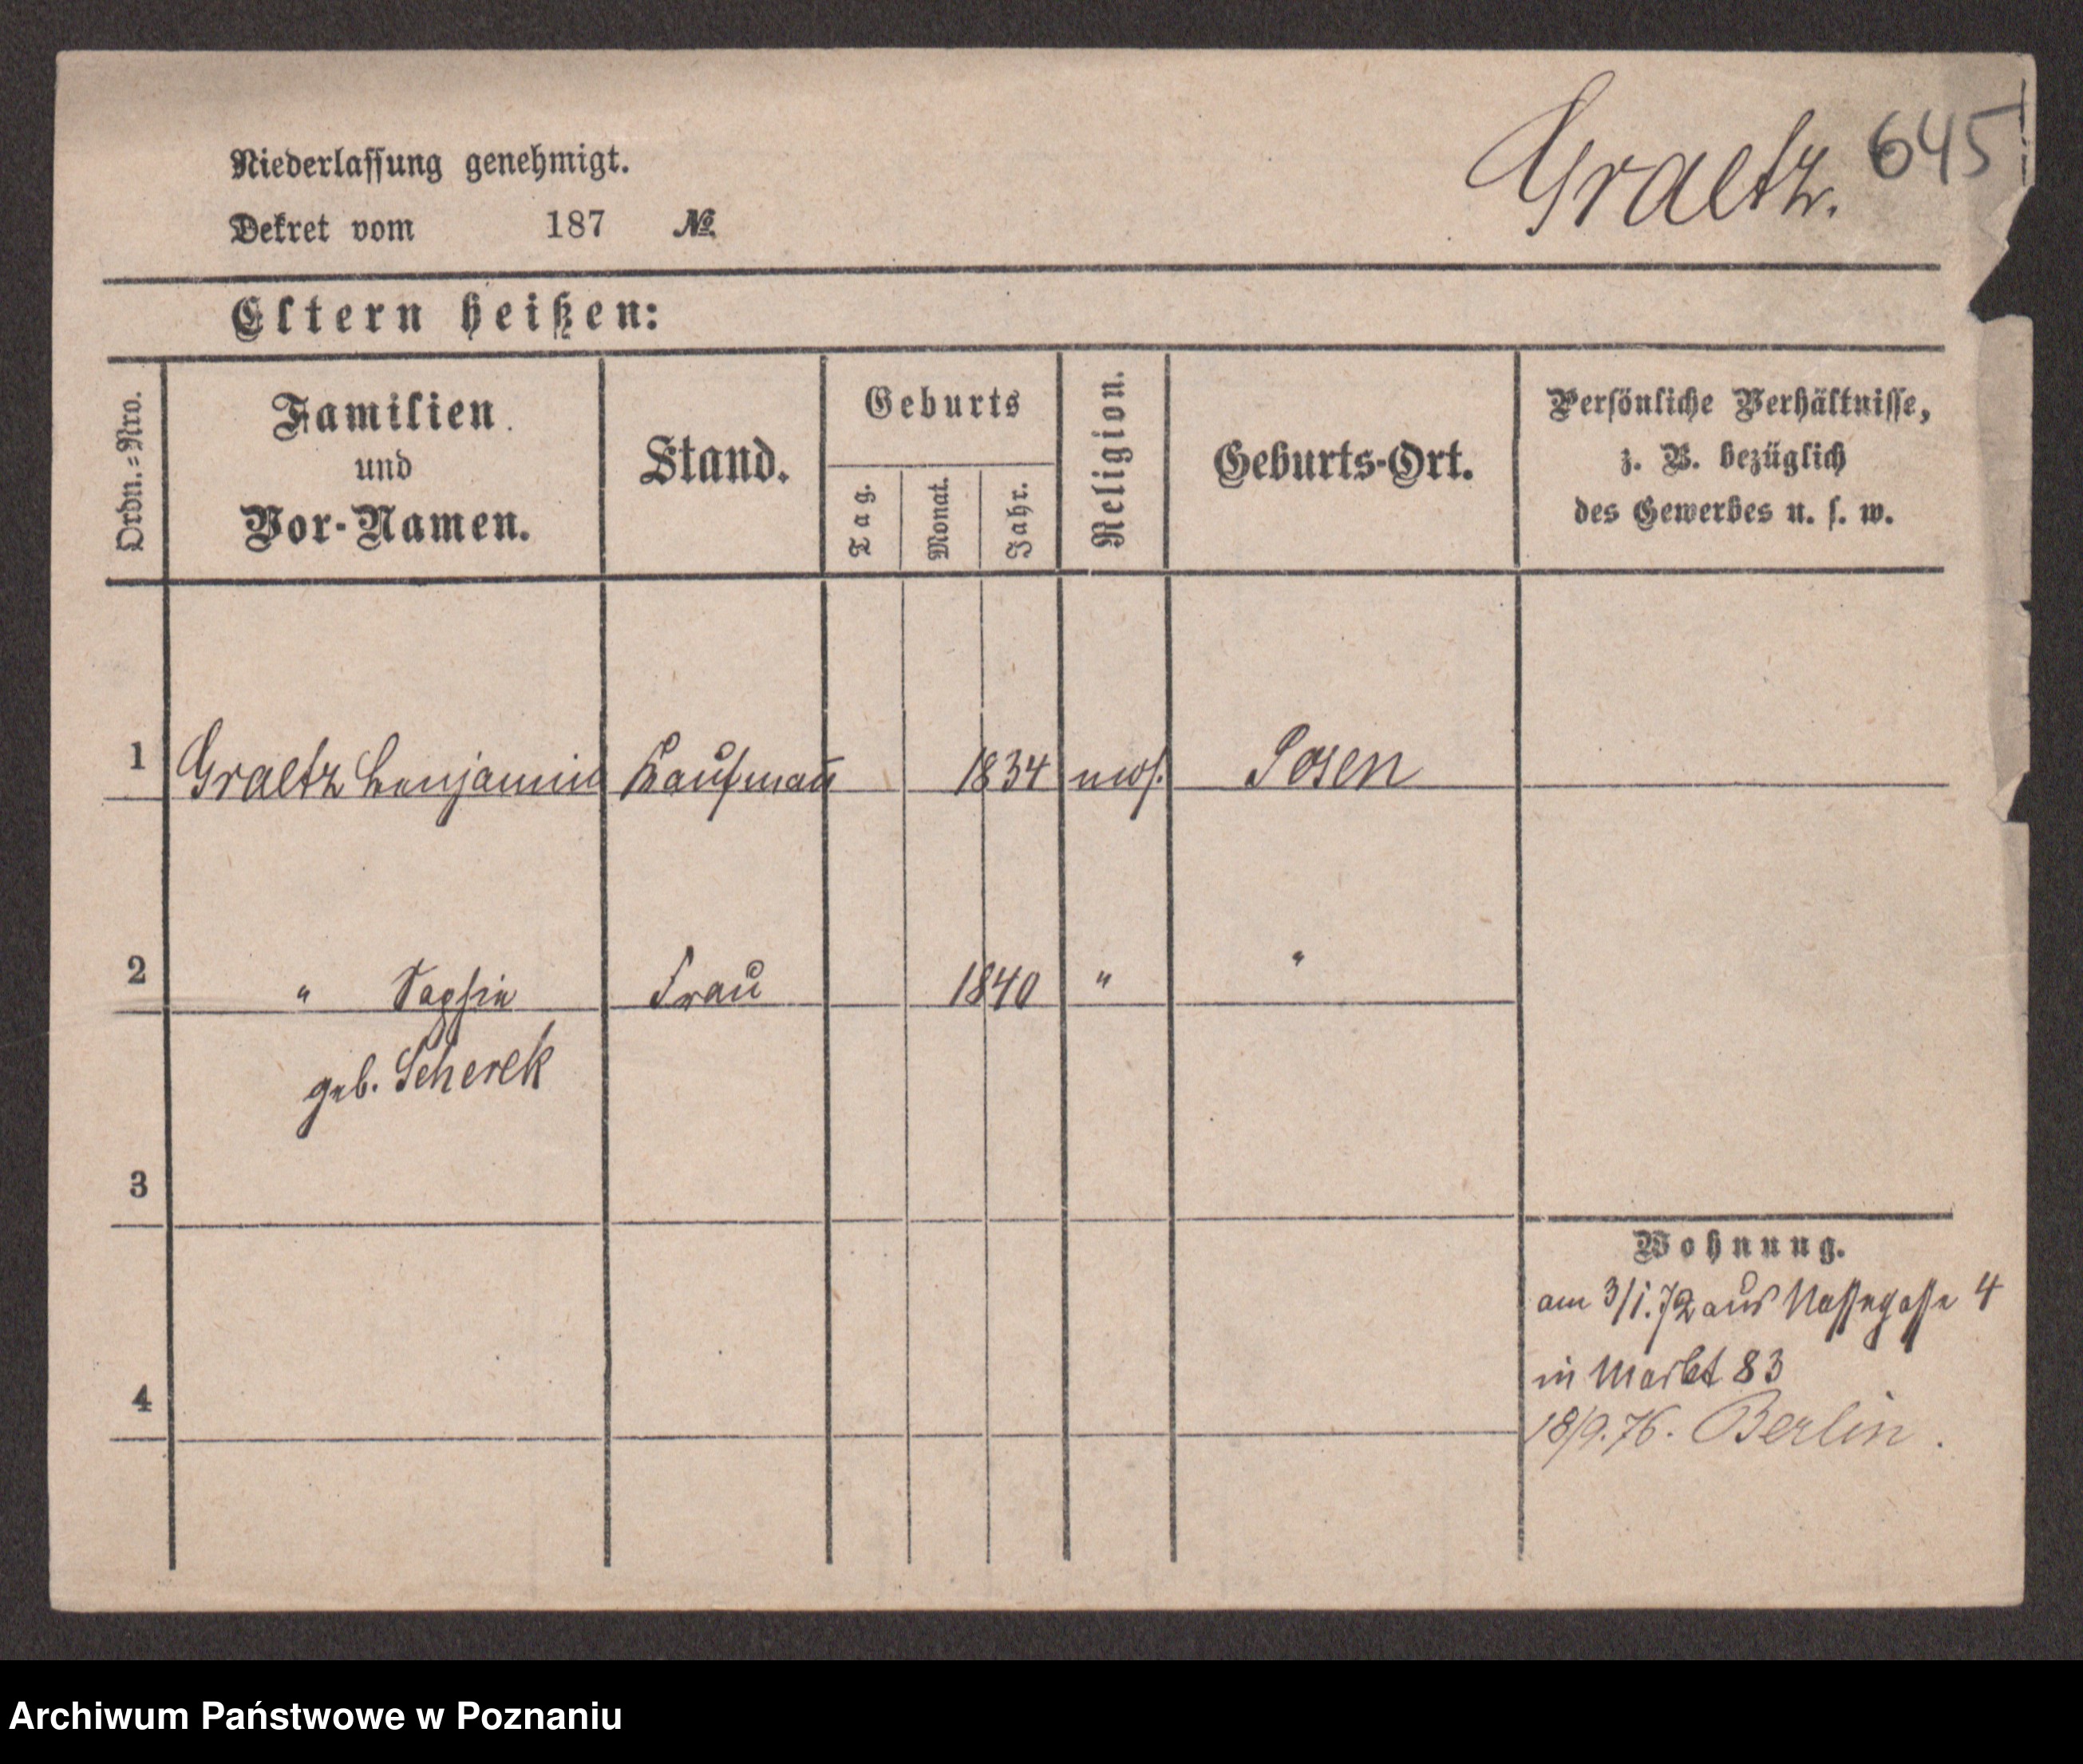 Graetz. 645
Niederlassung genehmigt.
Dekret vom 187 №
Eltern heißen:
Ordn.=Nro. Familien und Vor-Namen. Stand. Geburts Tag. Monat. Jahr. Religion. Geburts-Ort. Persönliche Verhältnisse, z. B. bezüglich des Gewerbes u. s. w.
1 Graetz Benjamin Kaufmañ 1834 mos. Posen
2 " Frau 1840 " "
geb. Scherek
3
4
Wohnung.
am 3/1.72 aus Nassegasse 4
in Markt 83
18/9.76. Berlin.
Archiwum Państwowe w Poznaniu